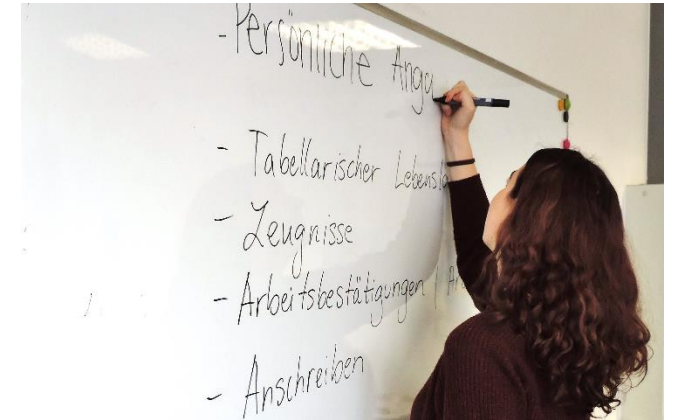 - Persönliche Anga
- Tabellarischer Lebensla
- Zeugnisse
- Arbeitsbestätigungen | Ar
- Anschreiben